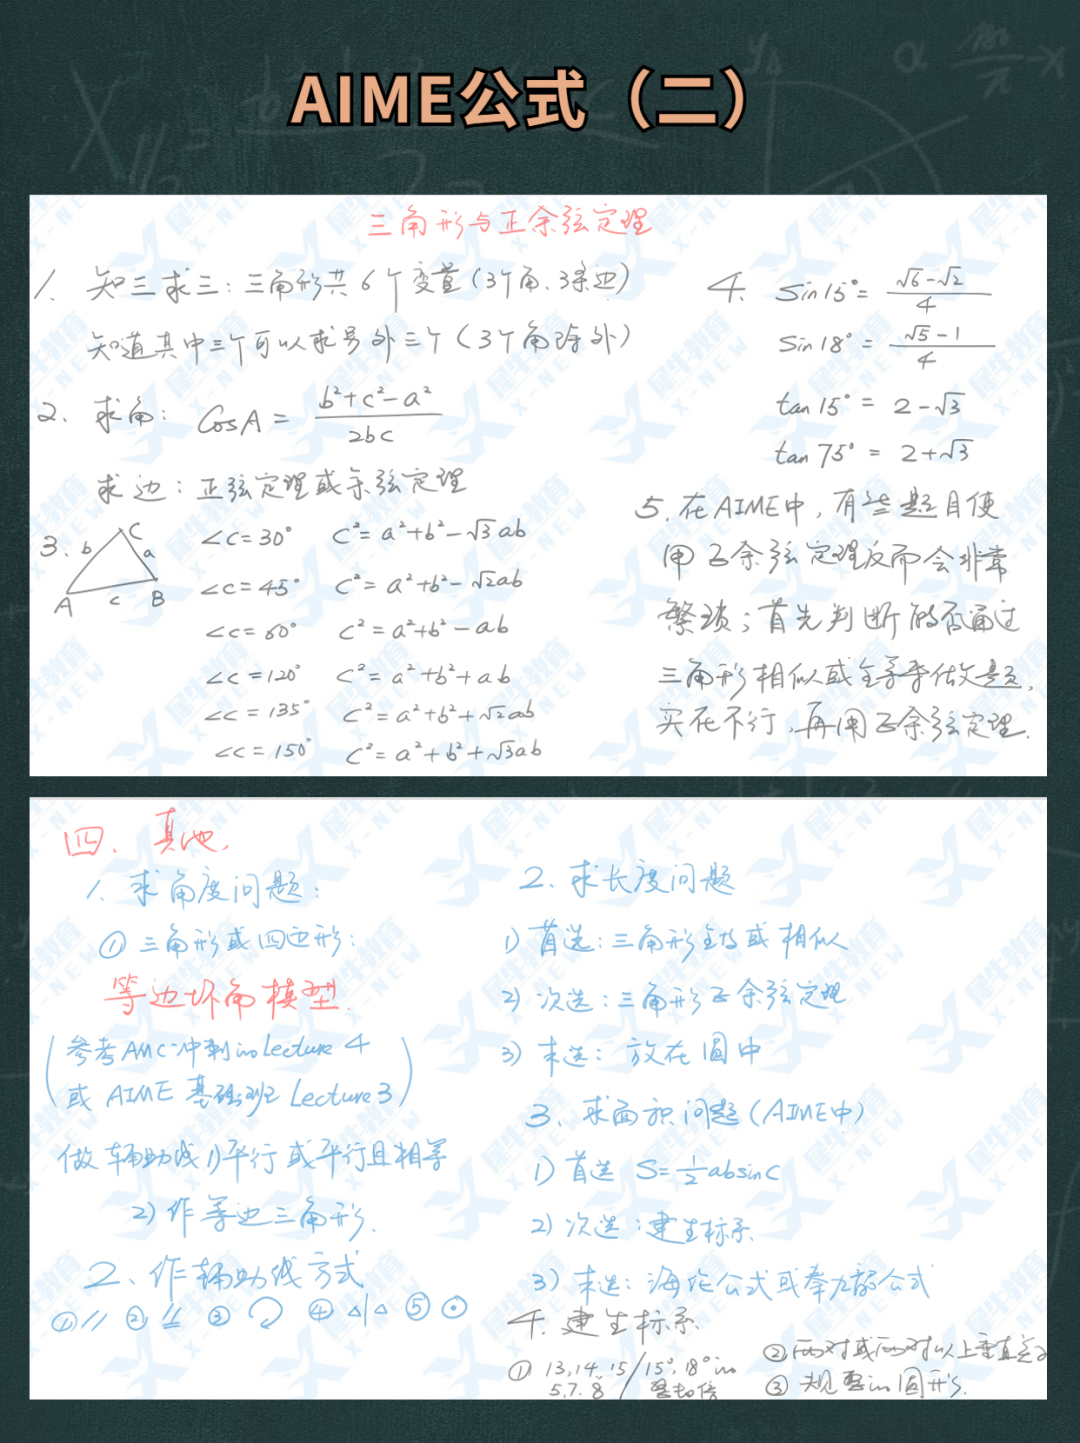 AIME公式（二）
三角形与正余弦定理
1. 知三求三：三角形共6个变量（3个角，3条边）
知道其中三个可以求另外三个（3个角除外）
2. 求角： cosA = (b²+c²-a²)/(2bc)
求边：正弦定理或余弦定理
3. A B C a b c
∠C=30° C²=a²+b²-√3ab
∠C=45° C²=a²+b²-√2ab
∠C=60° C²=a²+b²-ab
∠C=120° C²=a²+b²+ab
∠C=135° C²=a²+b²+√2ab
∠C=150° C²=a²+b²+√3ab
4. Sin15°= (√6-√2)/4
Sin18°= (√5-1)/4
tan15°= 2-√3
tan75°= 2+√3
5. 在AIME中，有些题目使
用正余弦定理反而会非常
繁琐；首先判断能否通过
三角形相似或全等来做题，
实在不行，再用正余弦定理.
四、其他.
1. 求角度问题：
① 三角形或四边形：
等边补角模型.
（参考AMC冲刺in Lecture 4
或 AIME 基础班 Lecture 3）
做辅助线 1)平行或平行且相等
2)作等边三角形.
2、作辅助线方式
① // ② ③ ④ ⑤ ⊙
2. 求长度问题
1) 首选：三角形全等或相似
2) 次选：三角形正余弦定理
3) 末选：放在圆中
3. 求面积问题（AIME中）
1) 首选 S=½absinC
2) 次选：建坐标系
3) 末选：海伦公式或奔九韶公式
4. 建坐标系
① 13,14,15 / 15°,18°in
5.7.8 整数倍
② 两对或两对以上垂直关系
③ 规整in圆形.
犀牛教育
X-NEW